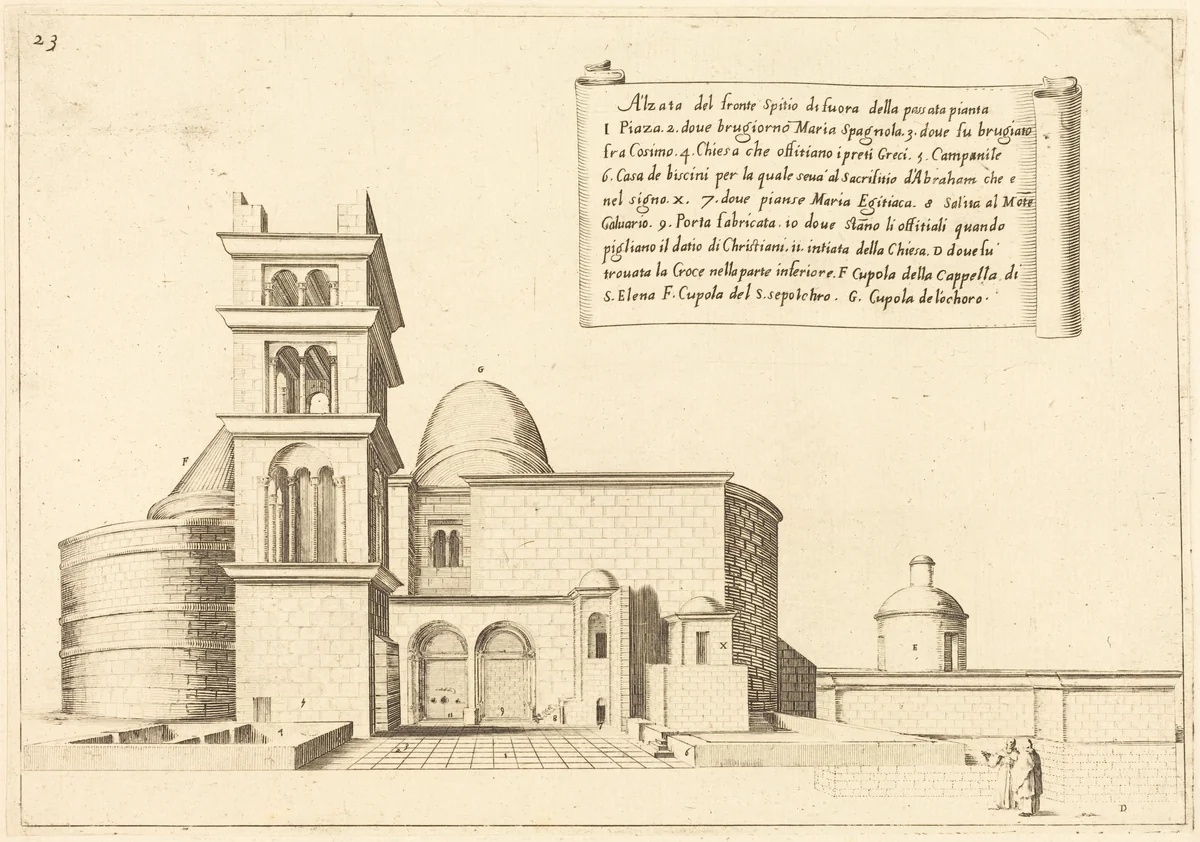 23
Alzata del fronte Spitio di fuora della passata pianta
1 Piaza. 2. doue brugiorno Maria Spagnola. 3. doue fu brugiato
fra Cosimo. 4. Chiesa che offitiano i preti Greci. 5. Campanile
6. Casa de biscini per la quale seua al Sacrifitio d'Abraham che e
nel signo. X. 7. doue pianse Maria Egitiaca. 8 Salita al Mōte
Caluario. 9. Porta fabricata. 10 doue Stāno li offitiali quando
pigliano il datio di Christiani. 11. intiata della Chiesa. D doue fu
trouata la Croce nella parte inferiore. F Cupola della Cappella di
S. Elena F. Cupola del S. sepolchro. G. Cupola de lochoro.
G
F
X
E
5
4
11
9
8
7
2
1
6
D